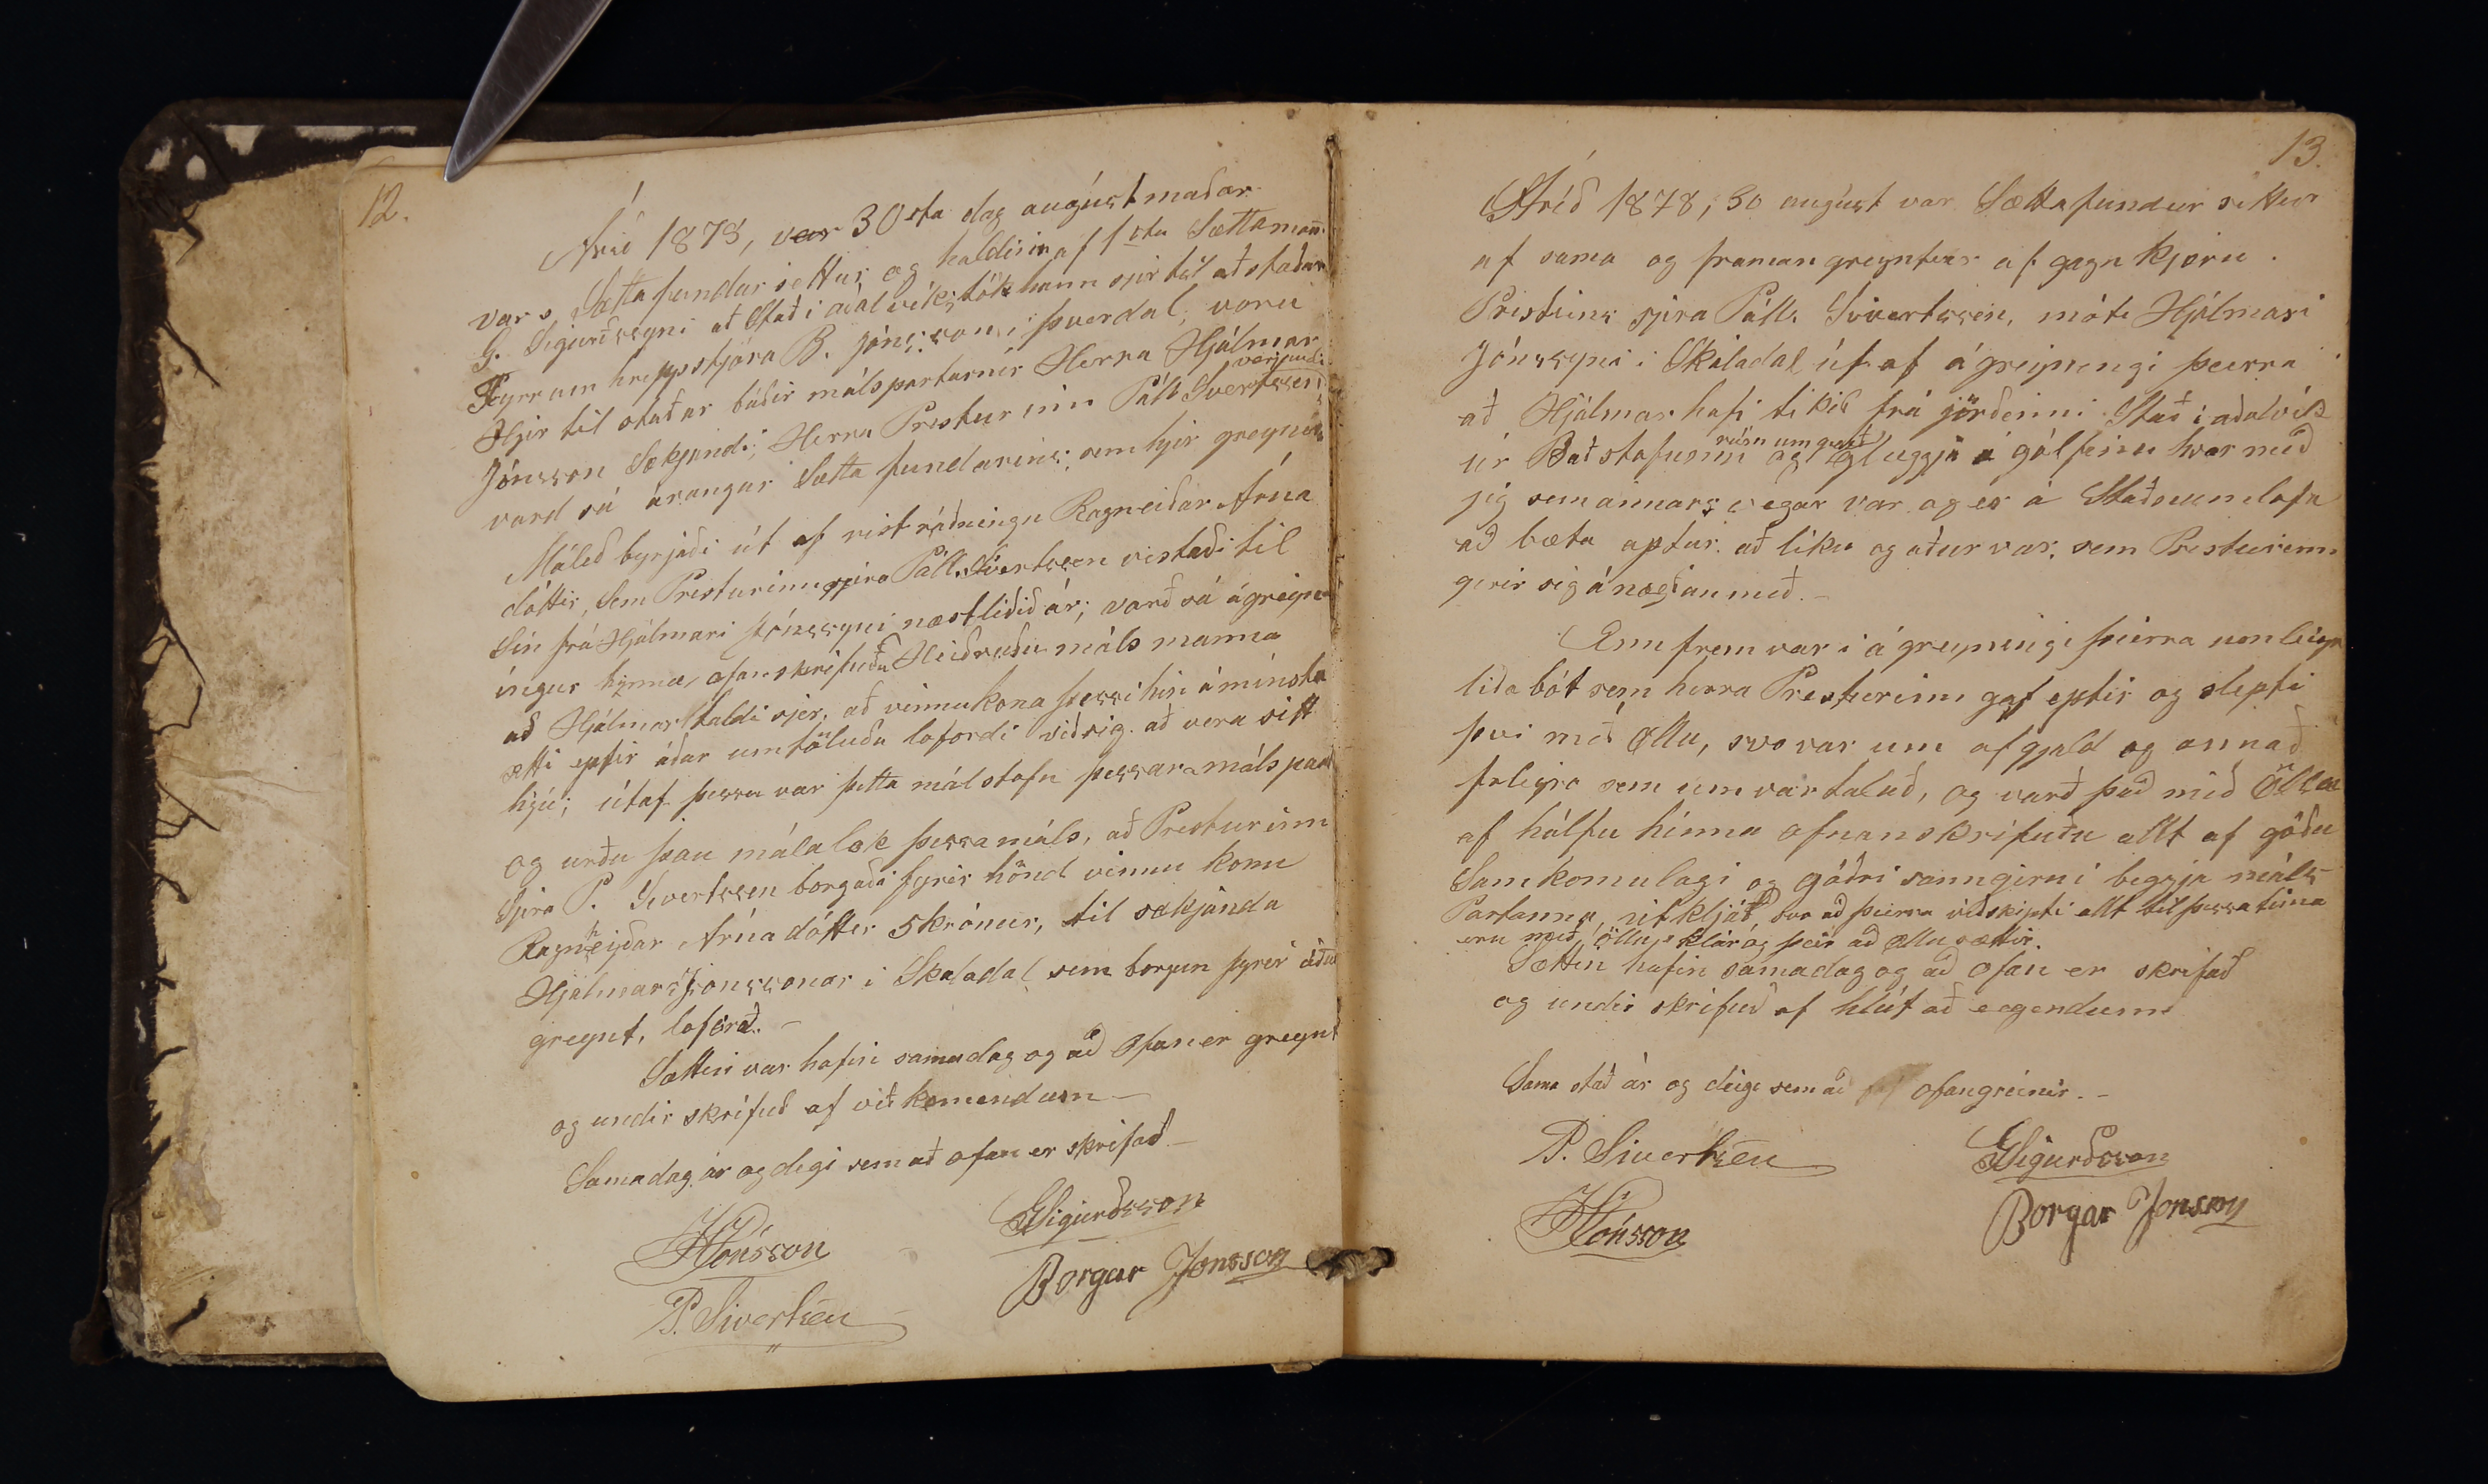 12.
Árið 1878, var 30sta dag augúst maðar
var s. Sætta fundur settur og haldinn af 1sta Sættamann.
G. Sigurðssyni að Stað i aðalvík, tók hann sjer til aðstaðar
Herrum hreppstjóra B. jónssson, i þverdal, voru
Hjer til staðar báðir málspartarnir Herra Hjálmar
verjandi
Jónsson Sækjandi, Herra Presturinn Páll Sivertssen,
varð sá árangur Sætta fundarins, sem hjer greynir
Málið byrjaði út af vistráðningu Ragneiðar Árna
dóttir, Sem Presturinn sjera Páll Sivertssen vistaði til
Sín frá Hjálmari jónssyni næstliðið ár; varð sá ágreyn
ingur hinna ofanskrifuðu Heiðruðu máls manna
að Hjálmar taldi sjer, að vinnukona þessi hin áminsta
ætti eptir áður umtöluðu loforði við sig að vera sitt
hjú; útaf þessu var þetta mál stofn þessara máls part
og urðu þau málalok þessa máls, að Presturinn
Sjera P. Sivertssen borgaði fyrir hönd vinnu konu
Ragnheyðar Árnadóttir 5 krónur, til sækjanda
Hjálmars Jónssonar i Skaladal sem borgun fyrir áður
greynt, loforð. –
Sættin var hafin sama dag og að ofan er greynt
og undir skrifuð af viðkomendum –
Sama dag ár og degi sem að ofan er skrifað –
HJónsson
GSigurðsson
P. Sivertsen
Borgar Jónsson
13.
Árið 1878, 30 augúst var Sættafundur settur
af sama og framan greyntur af gagn kjøru.
Prestsins sjera Páls Sivertssen, móti Hjálmari
Jónssyni i Skaladal út af ágreyningi þeirra
að Hjálmar hafi tikið frá jörðinni Stað i aðalvík
rúm umgerð
úr Baðstofunni og glugga á gólfinu hvar með
jeg sem annars vegar var og er á Staðnum lofa
að bæta aptur að líku og aður var, sem Presturinn
gerir sig ánægðan með. –
Enn frem var i ágreyningi þeirra um leigu
liða bót sem herra Presturinn gaf eptir og slepti
því með øllu, svo var um afgjald og annað
fleigra sem um var talað, og varð það með öllu
af hálfu hinna ofnanskrifuðu allt af góðu
Samkomulagi og góðri sanngirni beggja máls
Partanna, útkljáð, svo að þeirra viðskipti allt til þessa tíma
eru með öllu klár og þeir að øllu sættir.
Sættin hafin sama dag og að ofan er skrifað
og undir skrifuð af hlút að eigendum
Sama stað ár og deigi sem að ofangreinir. –
P. Sivertsen
GSigurðsson
HJónsson
Borgar Jonsson